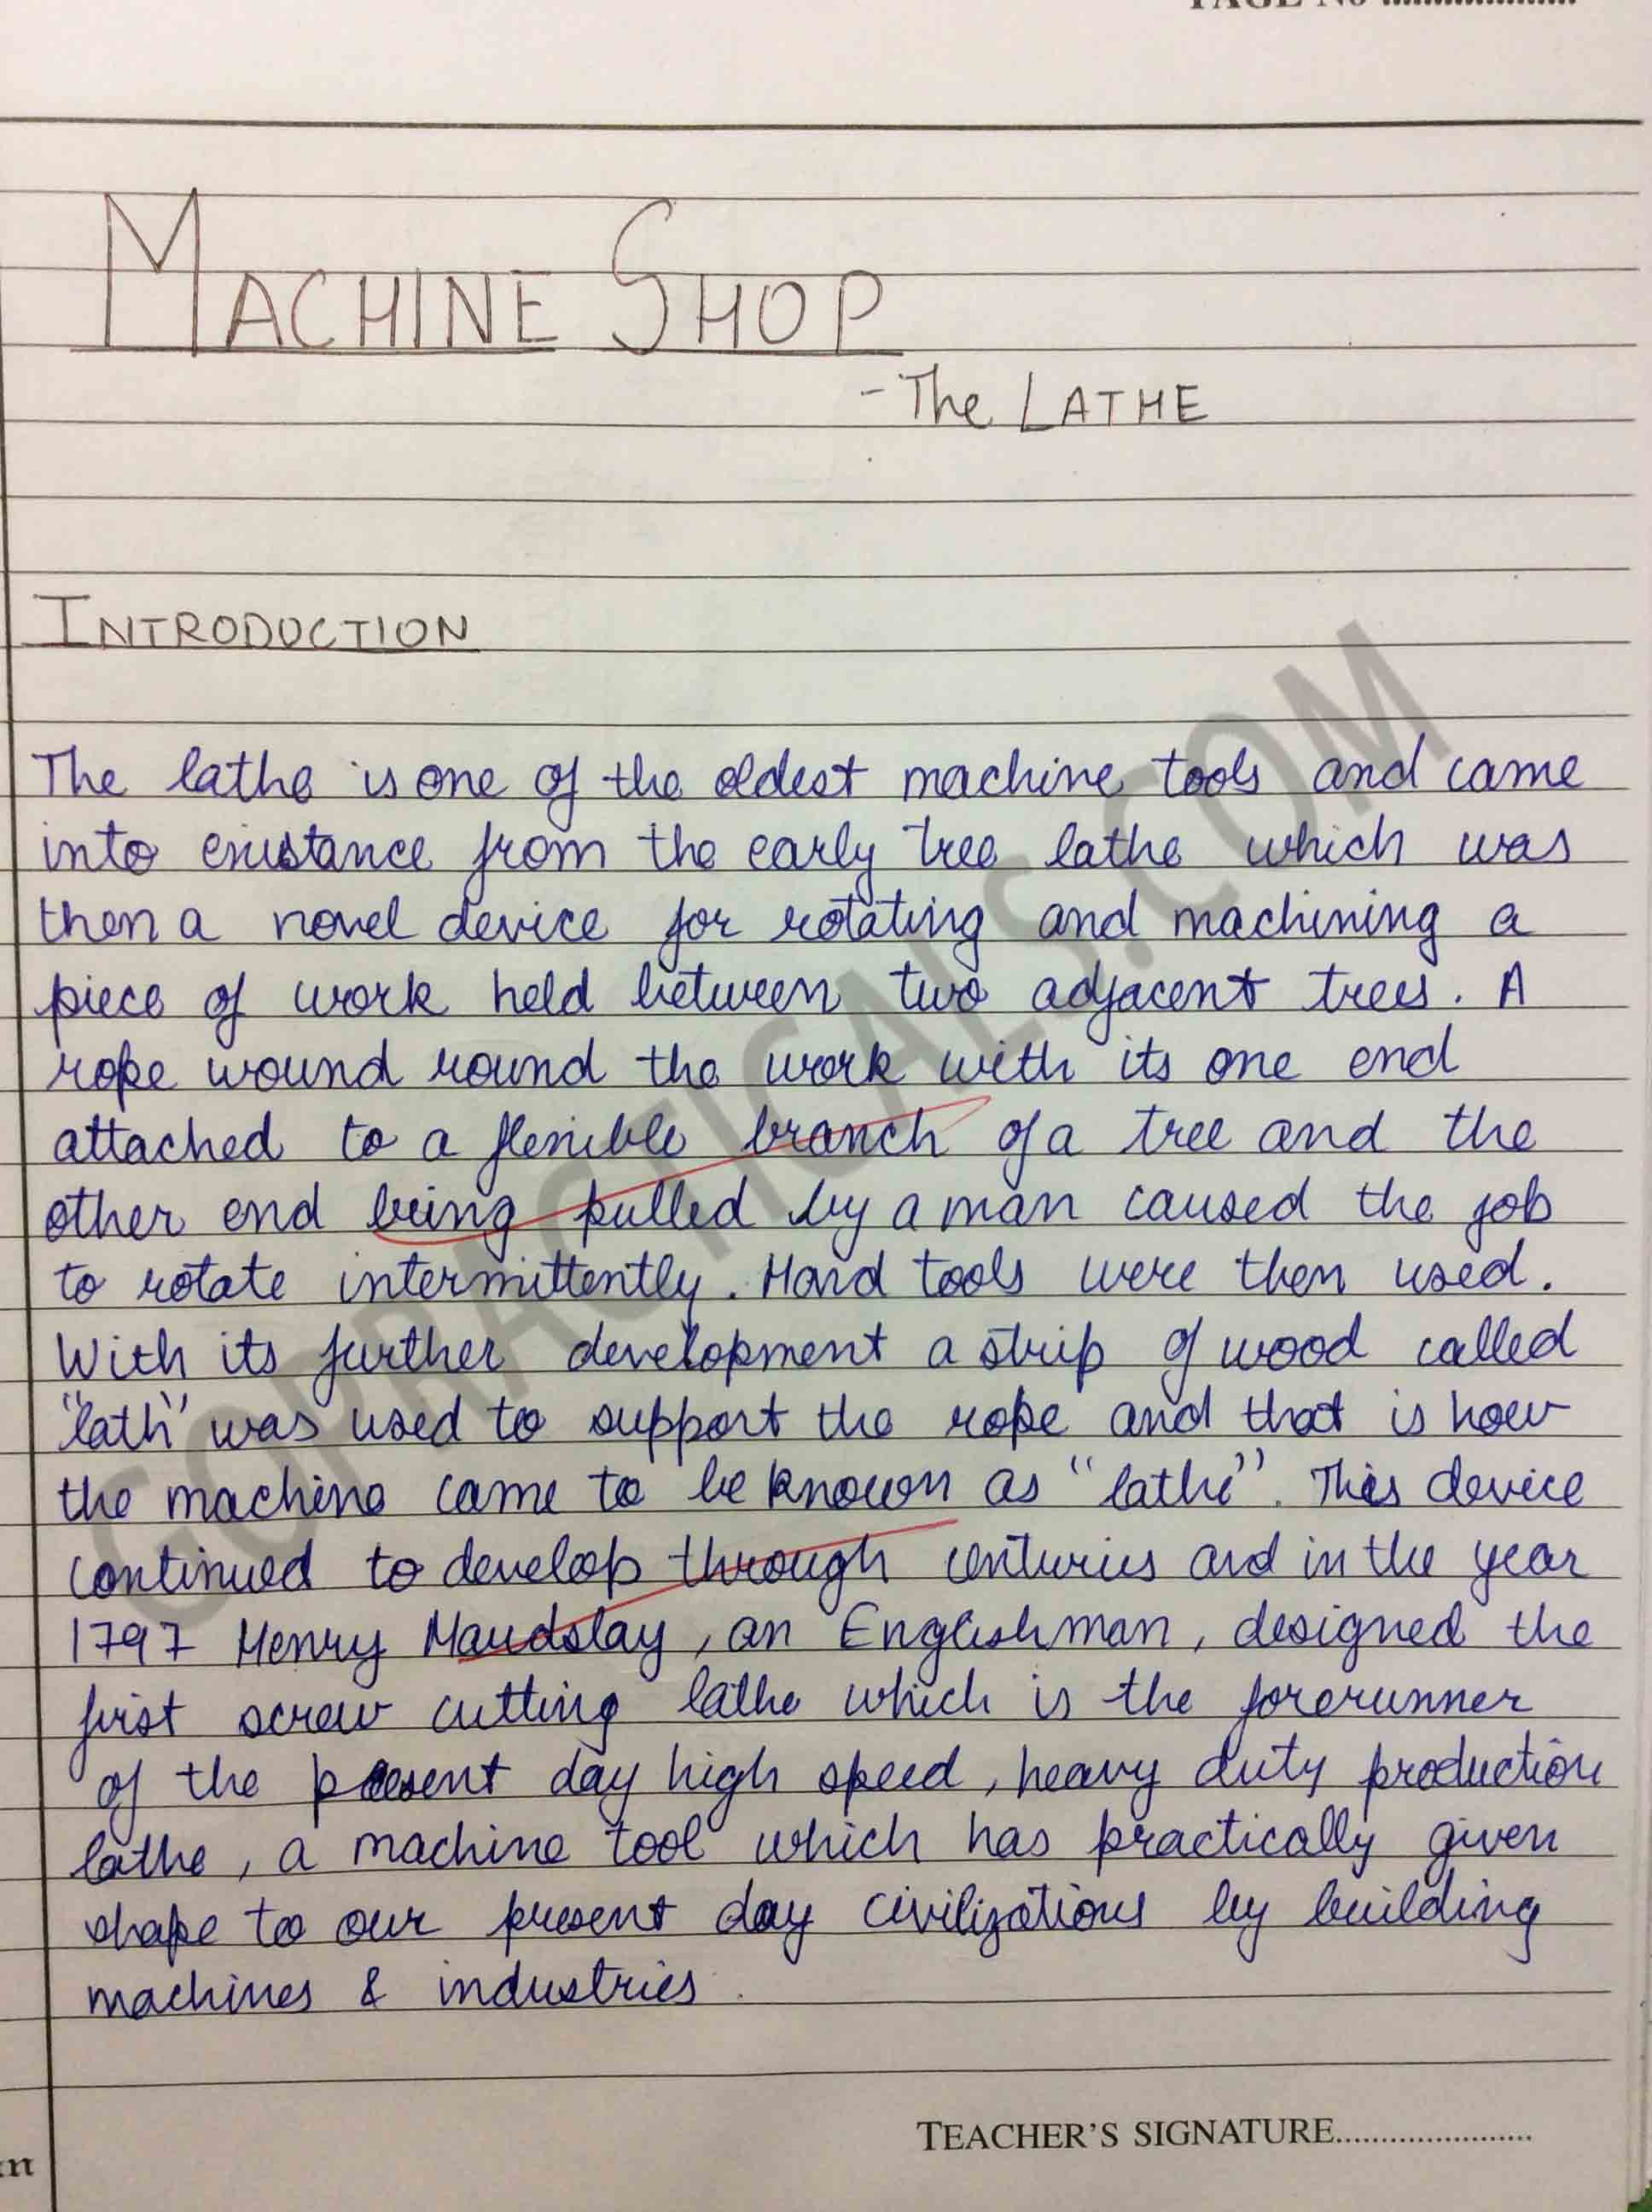 PAGE No ....................
MACHINE SHOP
- The LATHE
INTRODUCTION
The lathe is one of the oldest machine tools and came
into existance from the early tree lathe which was
then a novel device for rotating and machining a
piece of work held between two adjacent trees. A
rope wound round the work with its one end
attached to a flexible branch of a tree and the
other end being pulled by a man caused the job
to rotate intermittently. Hard tools were then used.
With its further development a strip of wood called
"lath" was used to support the rope and that is how
the machine came to be known as "lathe". This device
continued to develop through centuries and in the year
1797 Henry Maudslay, an Englishman, designed the
first screw cutting lathe which is the forerunner
of the present day high speed, heavy duty production
lathe, a machine tool which has practically given
shape to our present day civilizations by building
machines & industries.
GOPRACTICALS.COM
TEACHER'S SIGNATURE......................